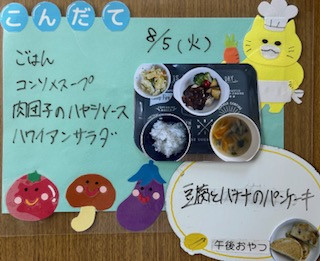 こんだて
8/5(火)
ごはん
コンソメスープ
肉団子のハヤシソース
ハワイアンサラダ
豆腐とバナナのパンケーキ
午後おやつ